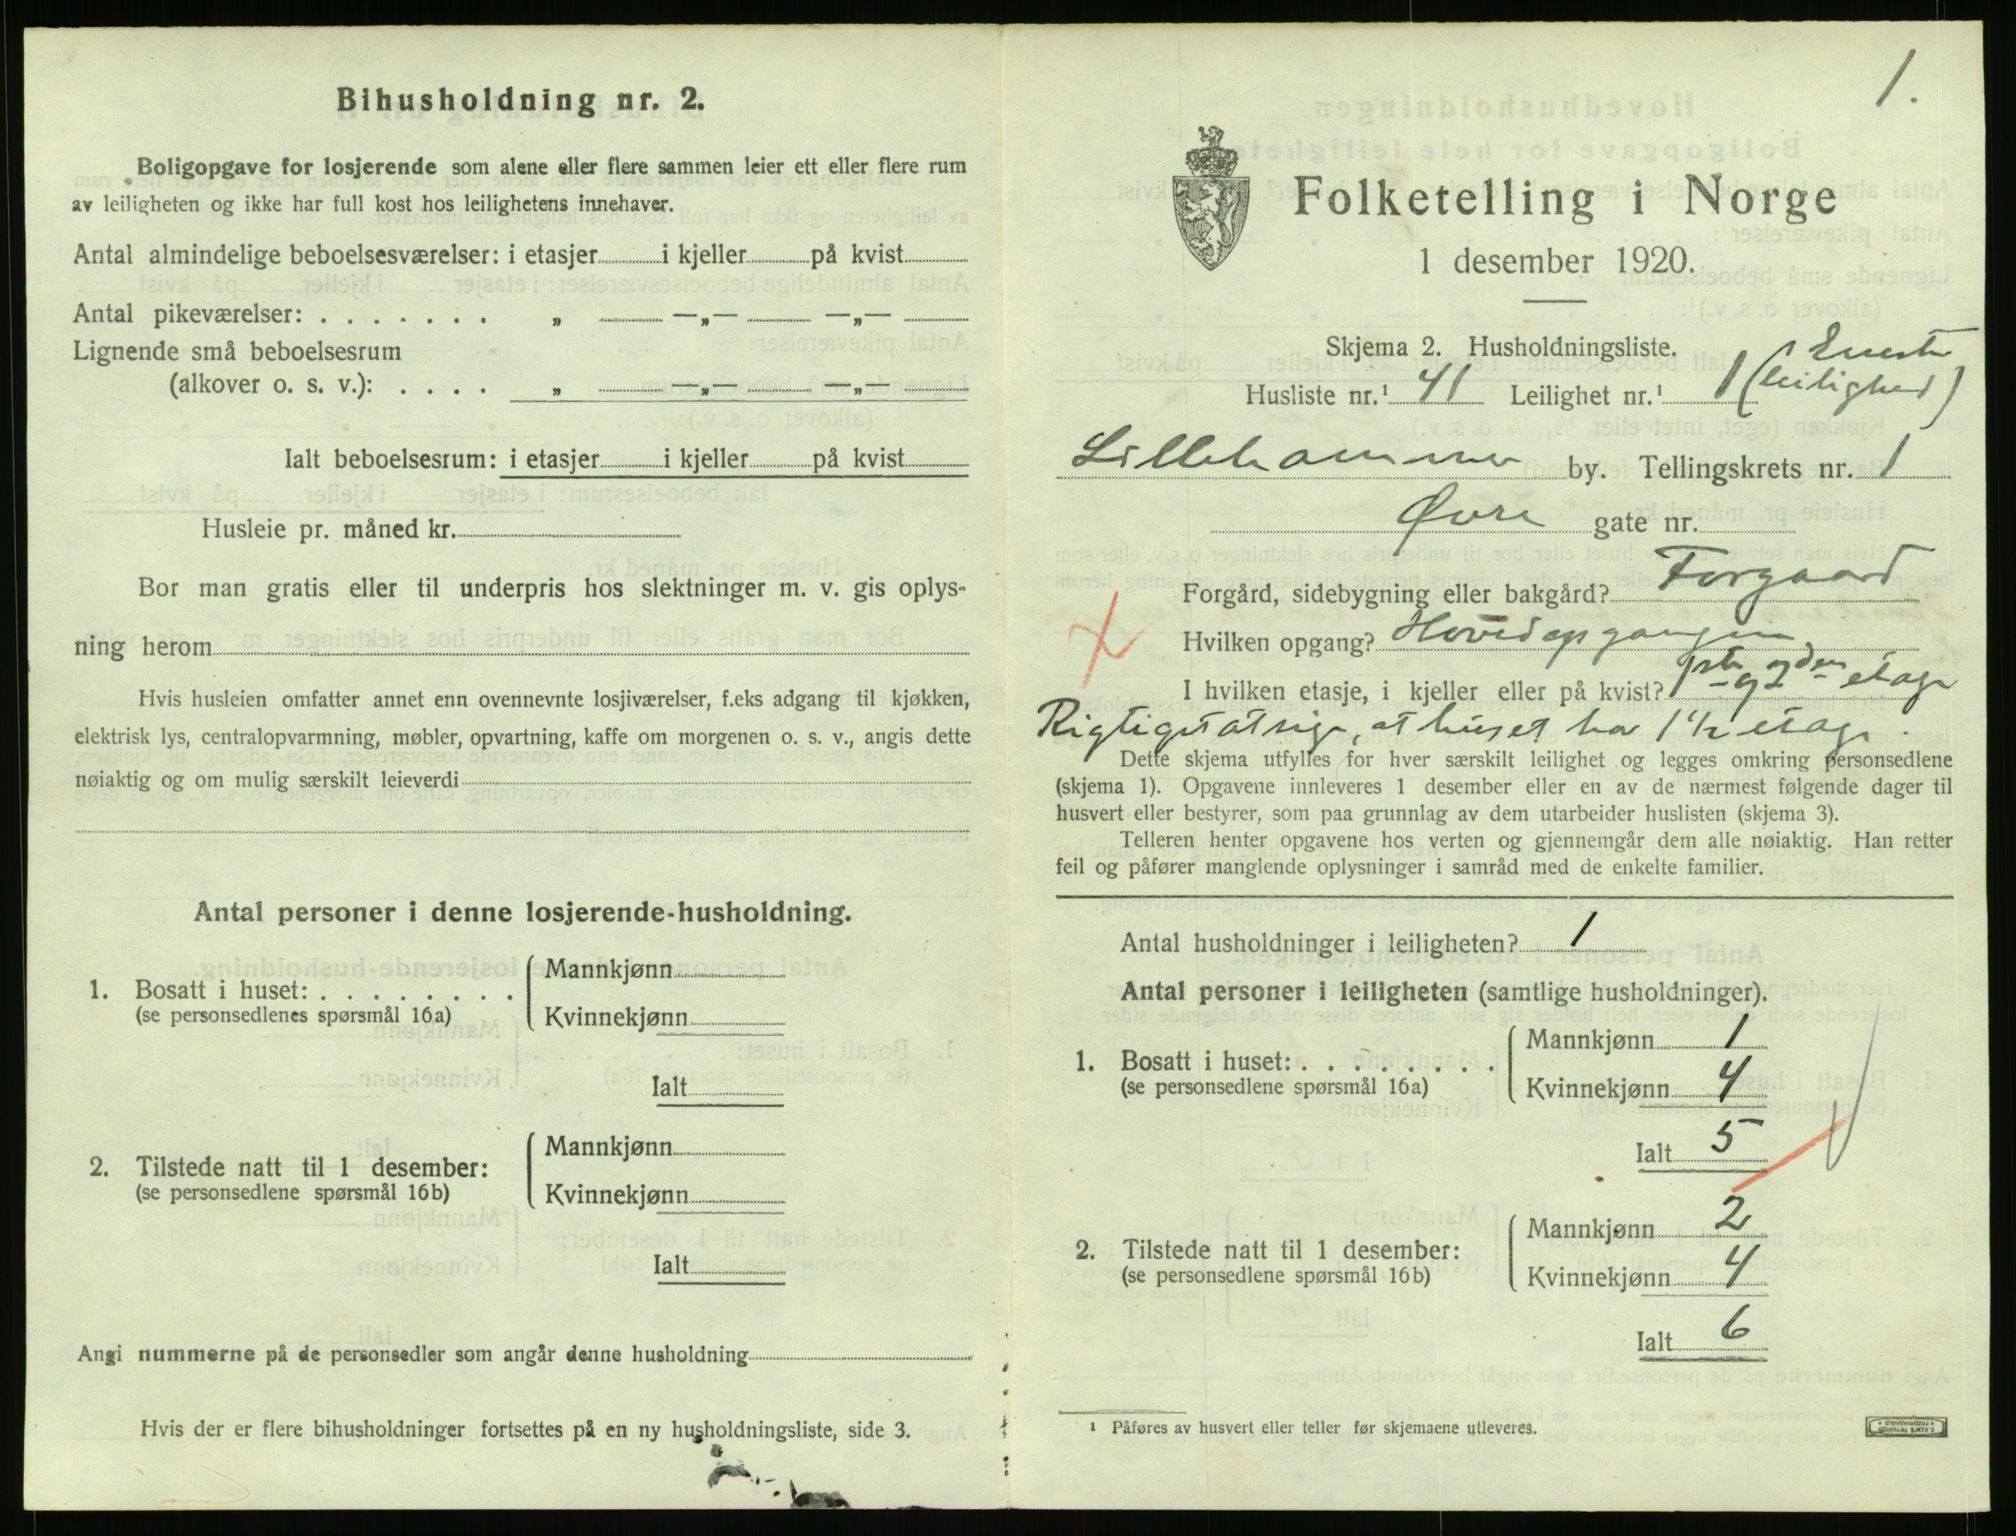 Bihusholdning nr. 2.
Boligopgave for losjerende som alene eller flere sammen leier ett eller flere rum
av leiligheten og ikke har full kost hos leilighetens innehaver.
Antal almindelige beboelsesværelser: i etasjer i kjeller på kvist
Antal pikeværelser: . . . . . . . „ —„— —„—
Lignende små beboelsesrum
(alkover o. s. v.): . . . . „ —„— —„—
Ialt beboelsesrum: i etasjer i kjeller på kvist
Husleie pr. måned kr.
Bor man gratis eller til underpris hos slektninger m. v. gis oplys-
ning herom
Hvis husleien omfatter annet enn ovennevnte losjiværelser, f.eks adgang til kjøkken,
elektrisk lys, centralopvarmning, møbler, opvartning, kaffe om morgenen o. s. v., angis dette
nøiaktig og om mulig særskilt leieverdi
Antal personer i denne losjerende-husholdning.
1. Bosatt i huset: . . . . . . . . Mannkjønn
(se personsedlenes spørsmål 16a) Kvinnekjønn
Ialt
2. Tilstede natt til 1 desember: Mannkjønn
(se personsedlene spørsmål 16b) Kvinnekjønn
Ialt
Angi nummerne på de personsedler som angår denne husholdning
Hvis der er flere bihusholdninger fortsettes på en ny husholdningsliste, side 3.
1.
Folketelling i Norge
1 desember 1920.
Skjema 2. Husholdningsliste.
Husliste nr.¹ 41 Leilighet nr.¹ 1 (Eneste
leilighed)
Lillehammer by. Tellingskrets nr. 1
Øvre gate nr.
Forgård, sidebygning eller bakgård? Forgaard
Hvilken opgang? Hovedopgangen
I hvilken etasje, i kjeller eller på kvist? 1ste og 2den etage
Rigtigst at sige, at huset har 1 1/2 etage.
Dette skjema utfylles for hver særskilt leilighet og legges omkring personsedlene
(skjema 1). Opgavene innleveres 1 desember eller en av de nærmest følgende dager til
husvert eller bestyrer, som paa grunnlag av dem utarbeider huslisten (skjema 3).
Telleren henter opgavene hos verten og gjennemgår dem alle nøiaktig. Han retter
feil og påfører manglende oplysninger i samråd med de enkelte familier.
Antal husholdninger i leiligheten? 1
Antal personer i leiligheten (samtlige husholdninger).
1. Bosatt i huset: . . . . . . . . Mannkjønn 1
(se personsedlene spørsmål 16a) Kvinnekjønn 4
Ialt 5
2. Tilstede natt til 1 desember: Mannkjønn 2
(se personsedlene spørsmål 16b) Kvinnekjønn 4
Ialt 6
¹ Påføres av husvert eller teller før skjemaene utleveres.